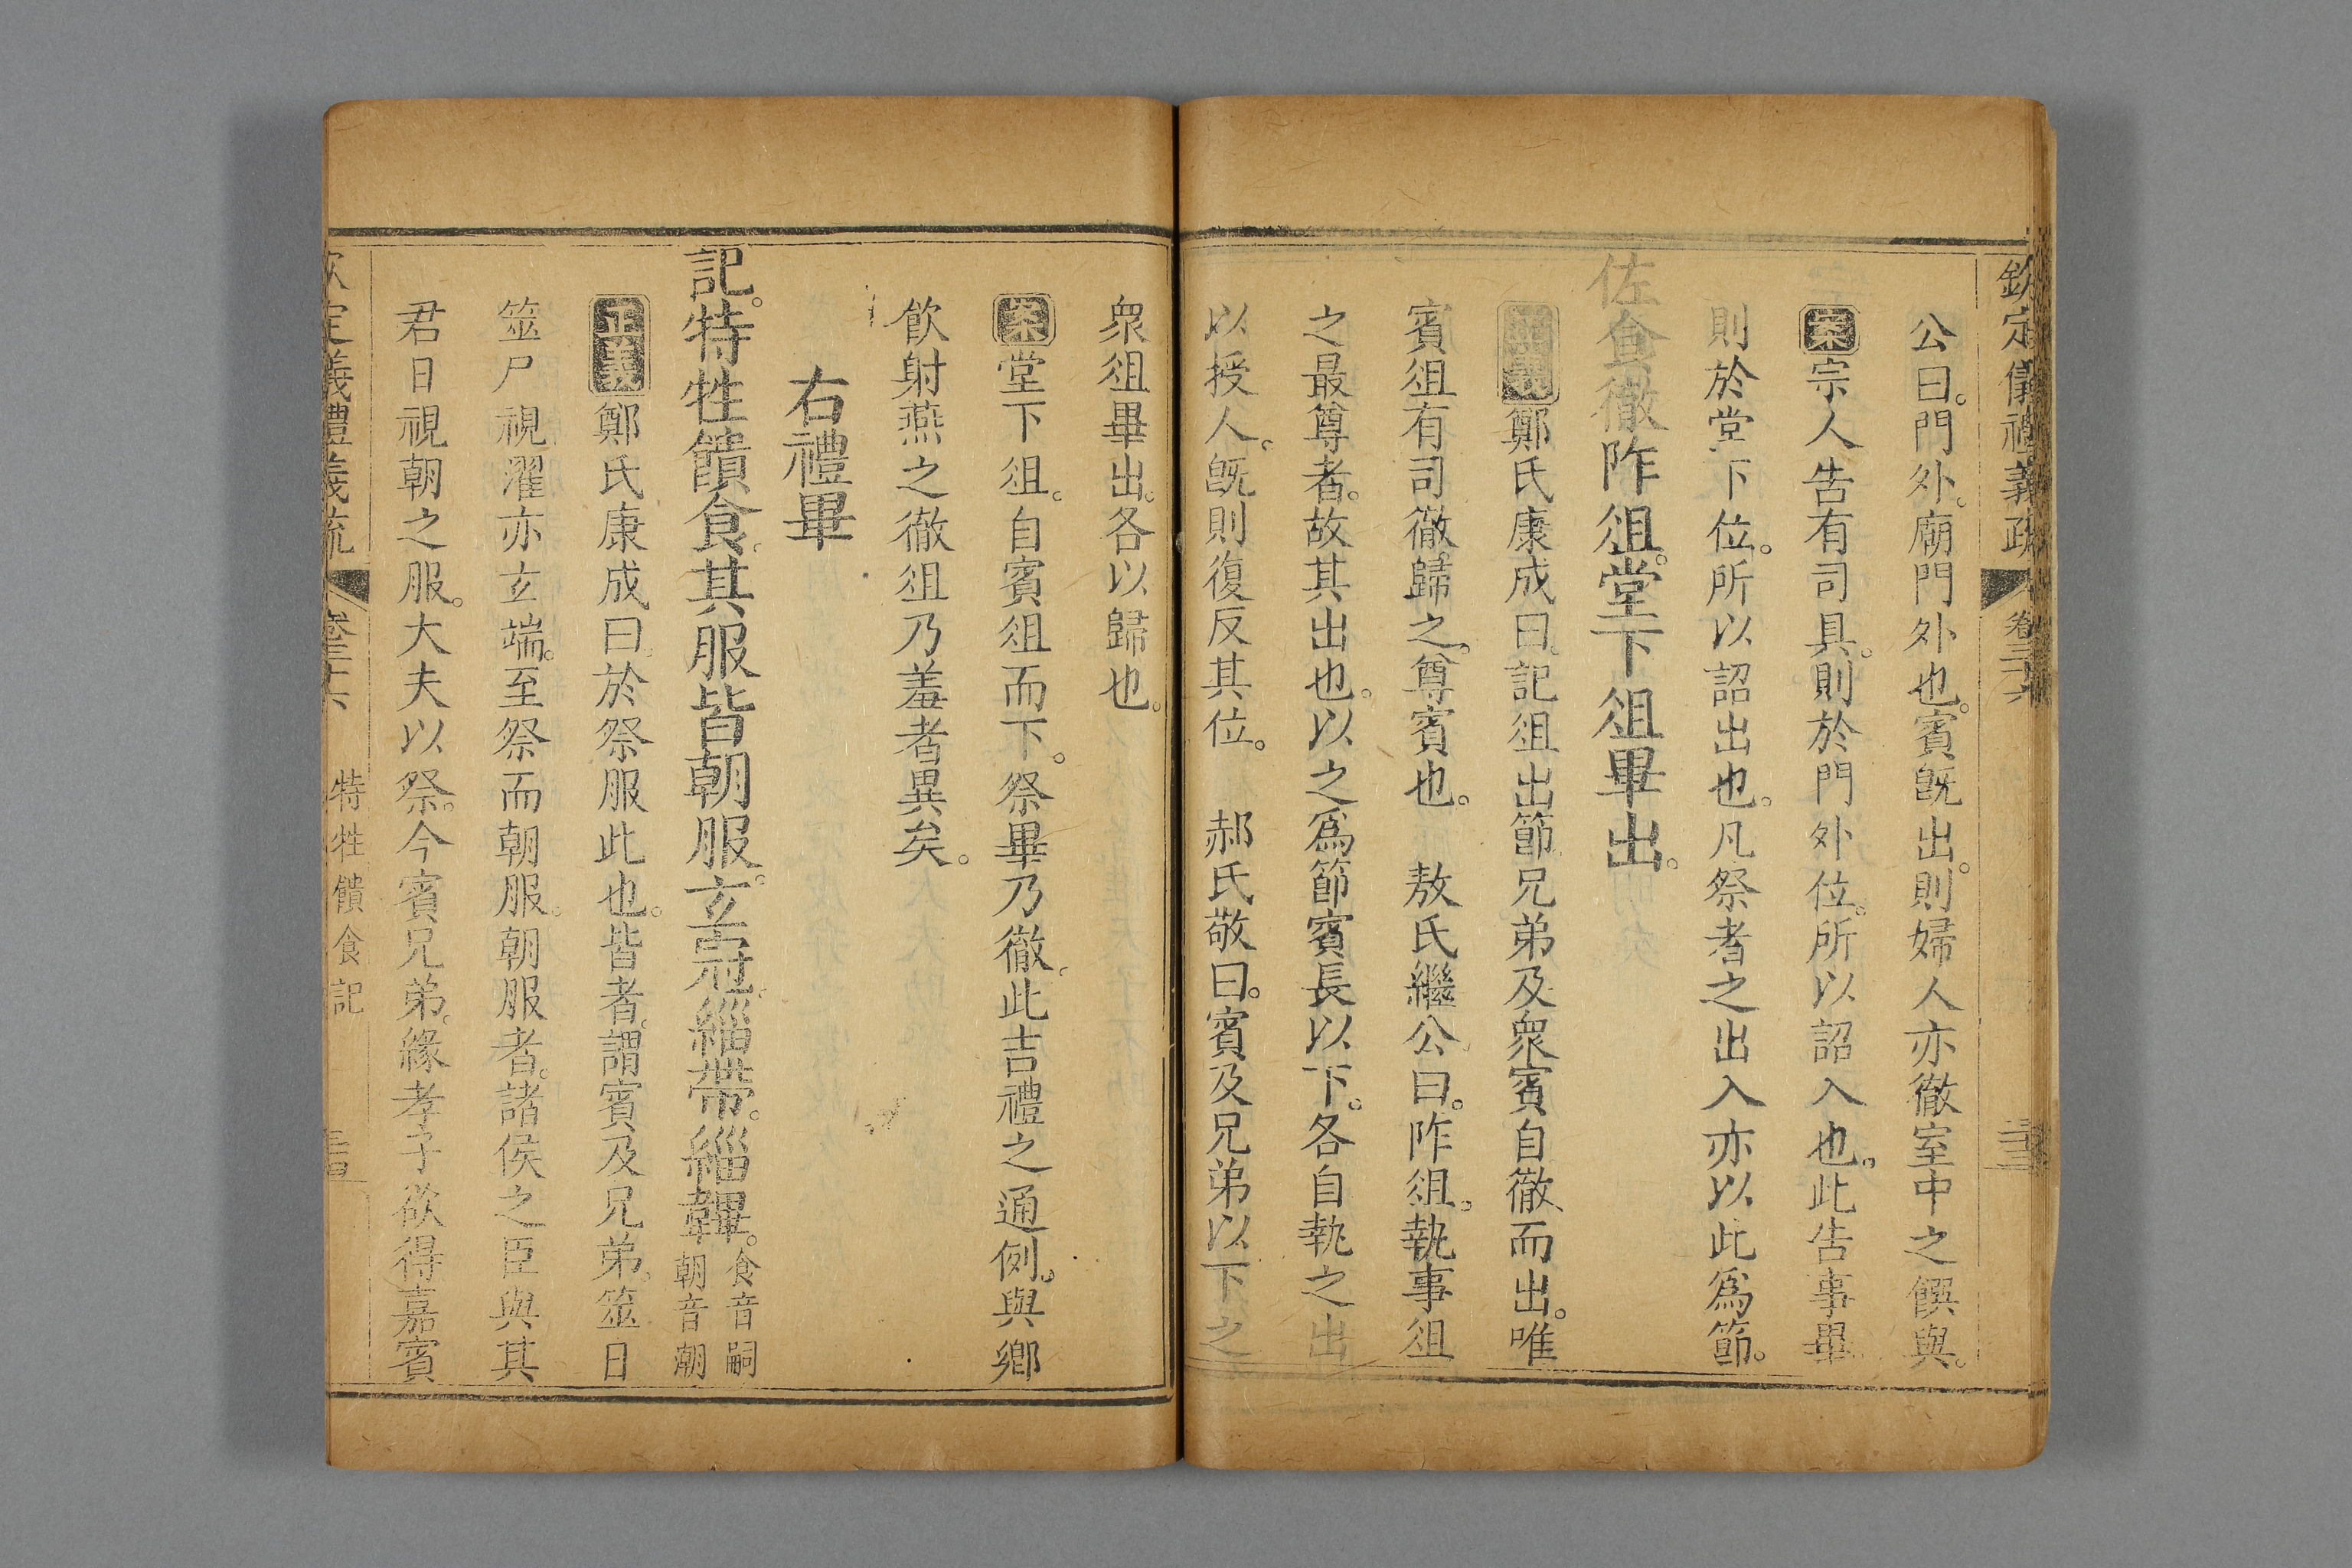 欽定儀禮義疏 卷三十六 三十三
公曰。門外。廟門外也。賓旣出。則婦人亦徹室中之饌與。
案宗人告有司具。則於門外位。所以詔入也。此告事畢
則於堂下位。所以詔出也。凡祭者之出入亦以此爲節。
佐食徹阼俎。堂下俎畢出。
正義鄭氏康成曰。記俎出節。兄弟及衆賓自徹而出。唯
賓俎有司徹歸之。尊賓也。 敖氏繼公曰。阼俎。執事俎
之最尊者。故其出也。以之爲節。賓長以下。各自執之出
以授人。旣則復反其位。 郝氏敬曰。賓及兄弟以下之
衆俎畢出。各以歸也。
案堂下俎。自賓俎而下。祭畢乃徹。此吉禮之通例。與鄉
飲射燕之徹俎乃羞者異矣。
右禮畢
記。特牲饋食。其服皆朝服。玄冠。緇帶。緇韠。食音嗣 朝音潮
正義鄭氏康成曰。於祭服此也。皆者。謂賓及兄弟。筮日
筮尸視濯亦玄端。至祭而朝服。朝服者。諸侯之臣與其
君日視朝之服。大夫以祭。今賓兄弟。緣孝子欲得嘉賓
欽定儀禮義疏 卷三十六 特牲饋食記 三十四